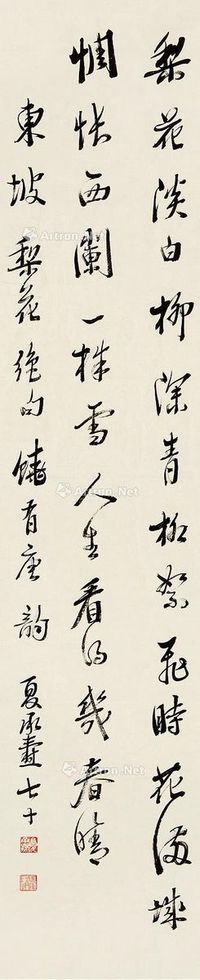 梨花淡白柳深青柳絮飛時花滿城
惆悵西闌一株雪人生看得幾春晴
東坡梨花絕句饒有唐韻 夏承燾七十